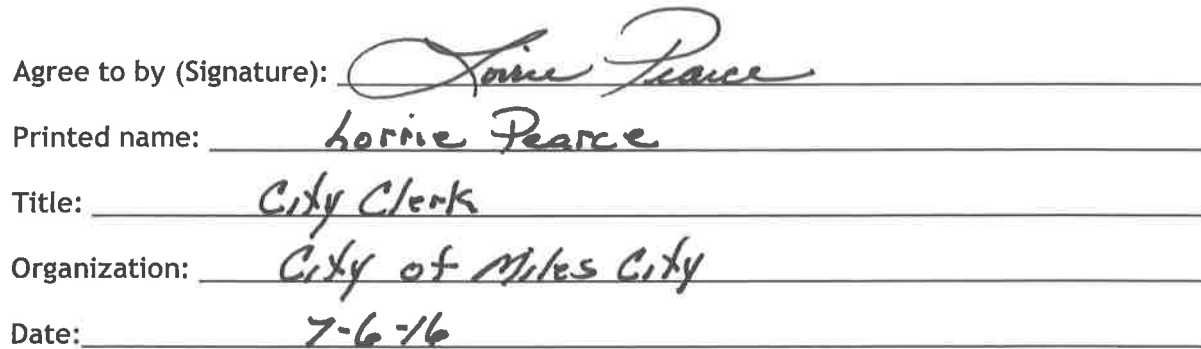 Agree to by (Signature): Lorrie Pearce
Printed name: Lorrie Pearce
Title: City Clerk
Organization: City of Miles City
Date: 7-6-16